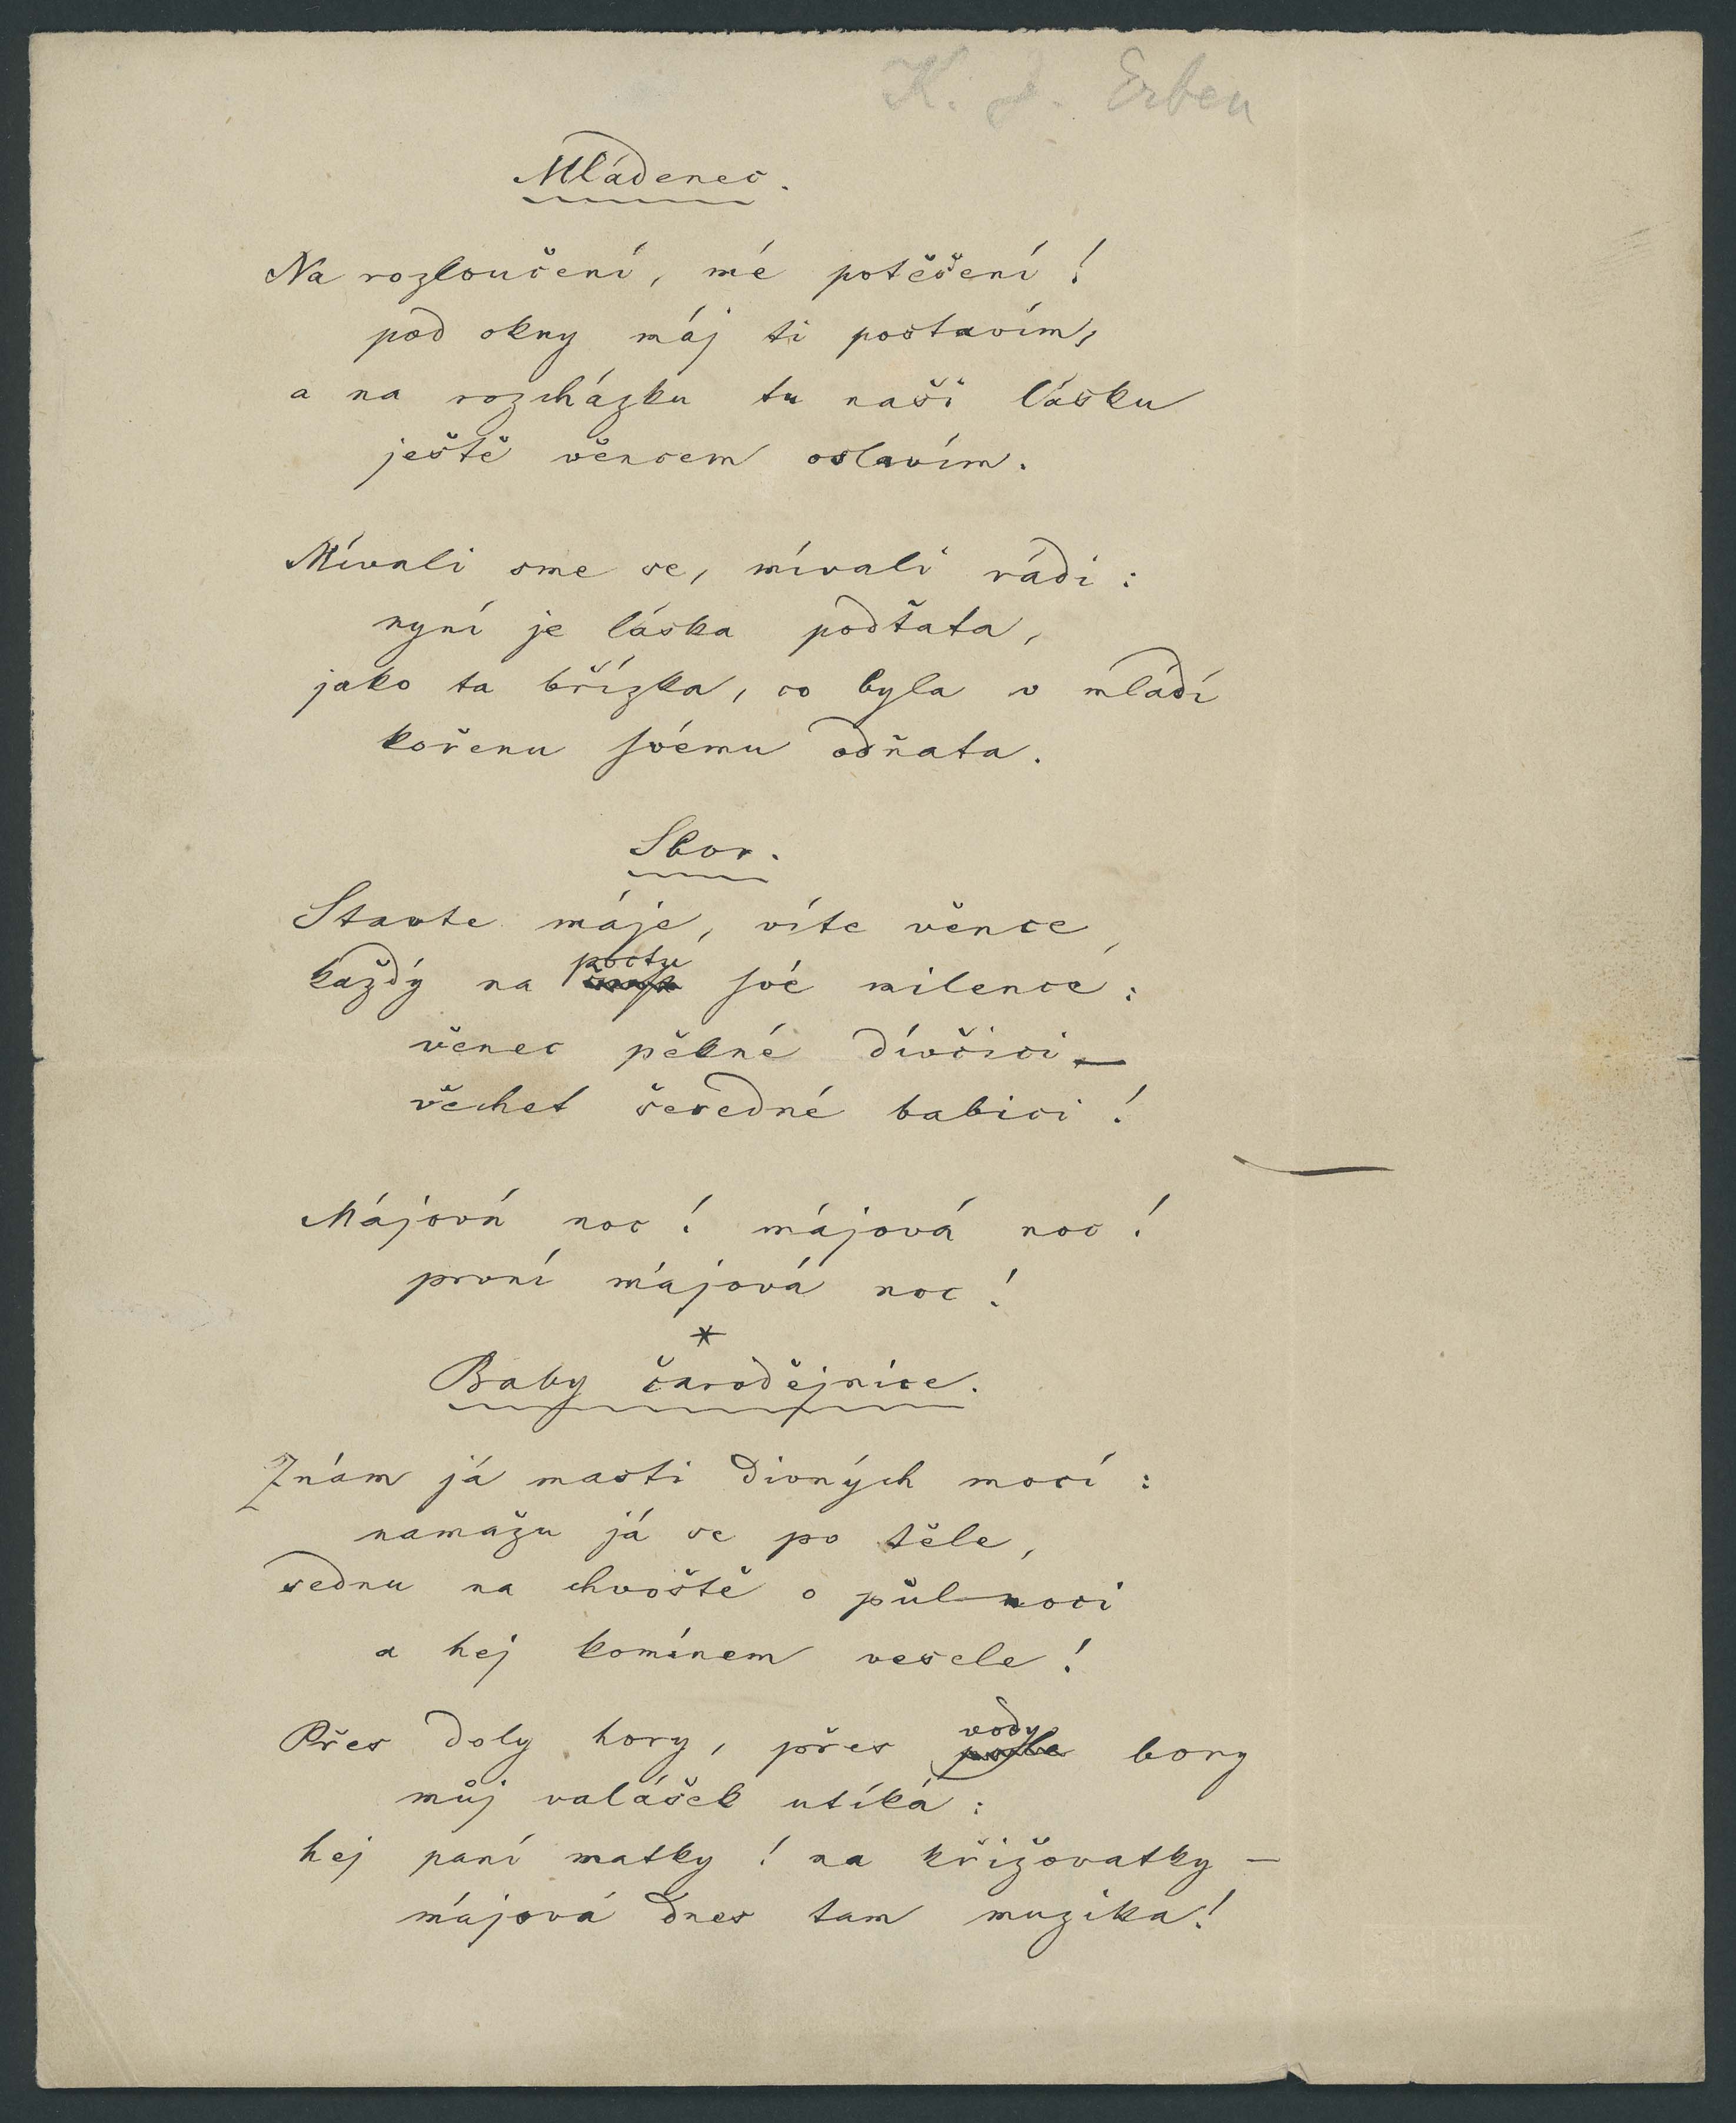 K. J. Erben
Mládenec.
Na rozloučení, mé potěšení!
pod okny máj ti postavím,
a na rozcházku tu naši lásku
ještě věncem oslavím.
Mívali sme se, mívali rádi:
nyní je láska podťata,
jako ta břízka, co byla v mládí
kořenu svému odňata.
Sbor.
Stavte máje, víte věnce,
každý na poctu své milence:
věnec pěkné dívčici —
věchet šeredné babici!
Májová noc! májová noc!
první májová noc!
*
Baby čarodějnice.
Znám já masti divných mocí:
namažu já se po těle,
sednu na chvoště o půlnoci
a hej komínem vesele!
Přes doly hory, přes vody bory
můj valášek utíká:
hej paní matky! na křižovatky —
májová dnes tam muzika!